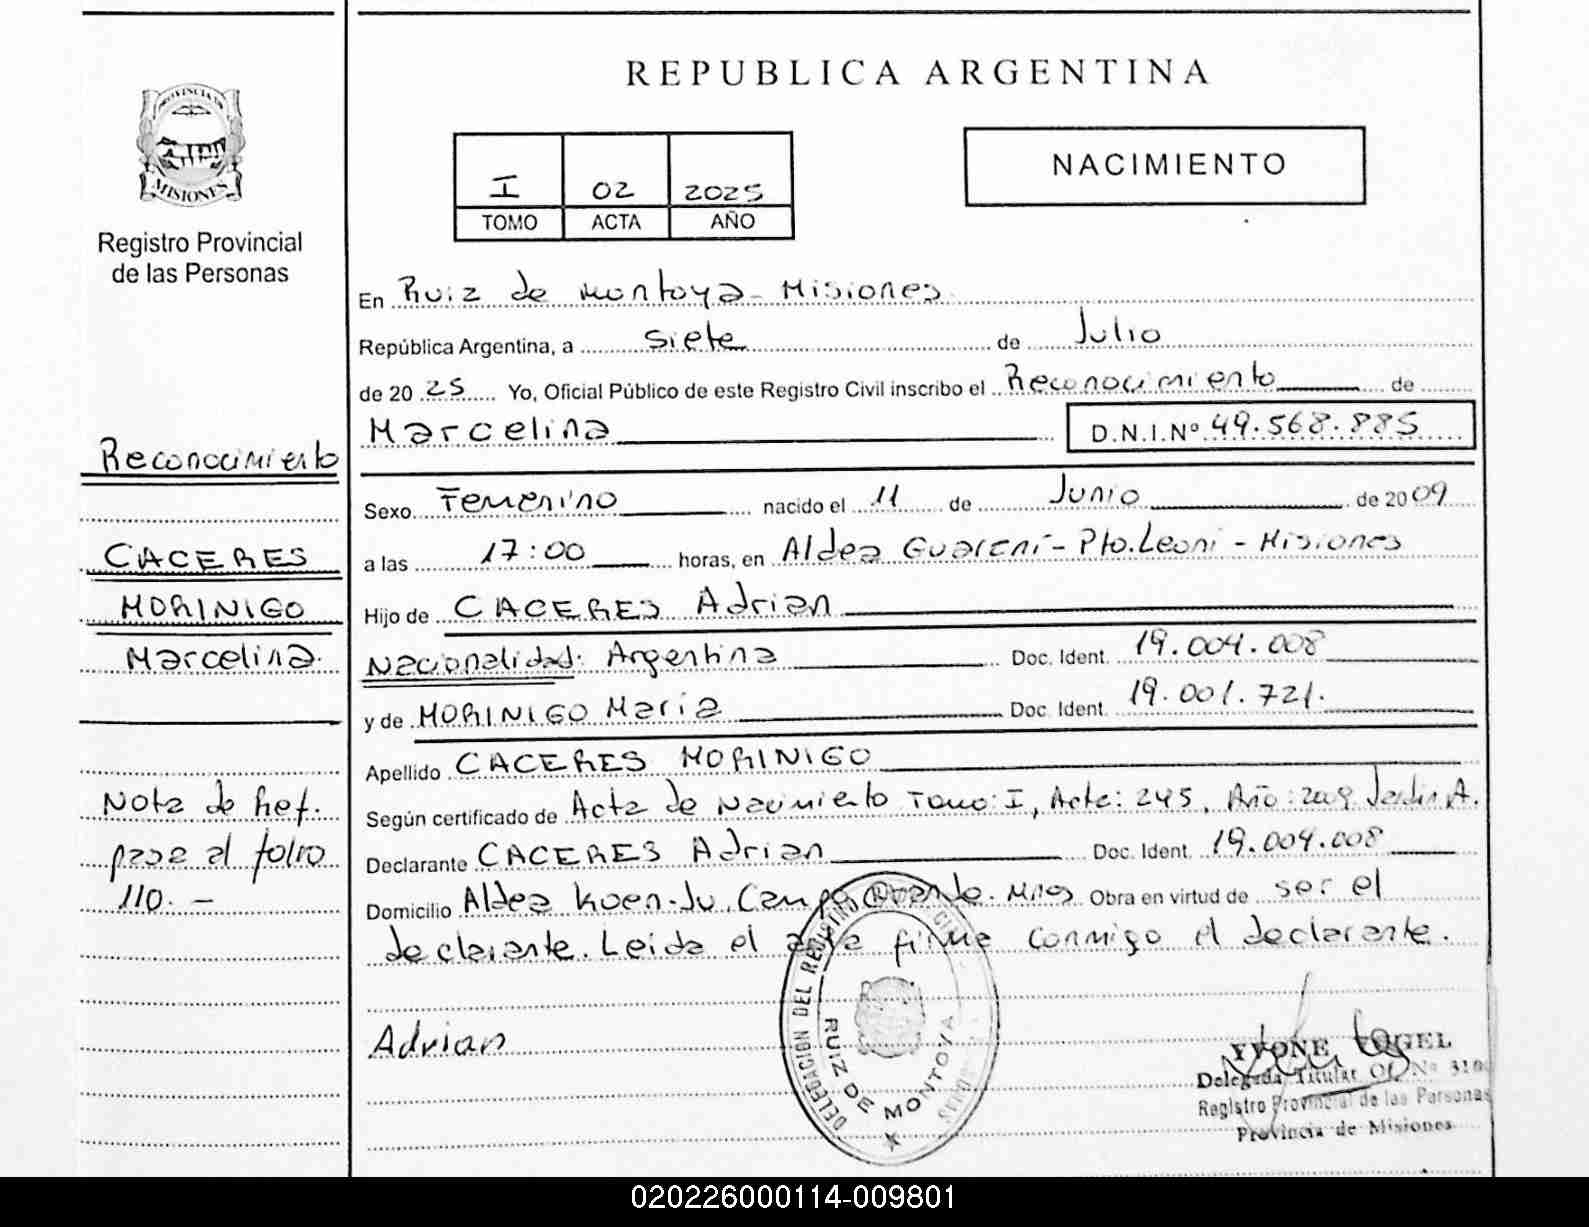 REPUBLICA ARGENTINA
PROVINCIA DE
MISIONES
Registro Provincial
de las Personas
I 02 2025
TOMO ACTA AÑO
NACIMIENTO
En Ruiz de Montoya - Misiones
República Argentina, a siete de Julio
de 2025 Yo, Oficial Público de este Registro Civil inscribo el Reconocimiento de
Marcelina D.N.I.Nº 49.568.885
Sexo Femenino nacido el 11 de Junio de 2009
a las 17:00 horas, en Aldea Guaraní - Pto. Leoni - Misiones
Hijo de CACERES Adrian
Nacionalidad: Argentina Doc. Ident. 19.004.008
y de MORINIGO Maria Doc. Ident. 19.001.721.
Apellido CACERES MORINIGO
Según certificado de Acta de Nacimiento Tomo: I, Acta: 245, Año: 2009 Jardin A.
Declarante CACERES Adrian Doc. Ident. 19.004.008
Domicilio Aldea Koen-Ju. Campo Grande. Mnes Obra en virtud de ser el
declarante. Leida el acta firma conmigo el declarante.
Adrian
Reconocimiento
CACERES
MORINIGO
Marcelina.
Nota de Ref.
pase al folio
110. -
DELEGACION DEL REGISTRO
RUIZ DE MONTOYA
YVONE
Delegada Titular Of. Nº
Registro Provincial de las Personas
Provincia de Misiones
020226000114-009801